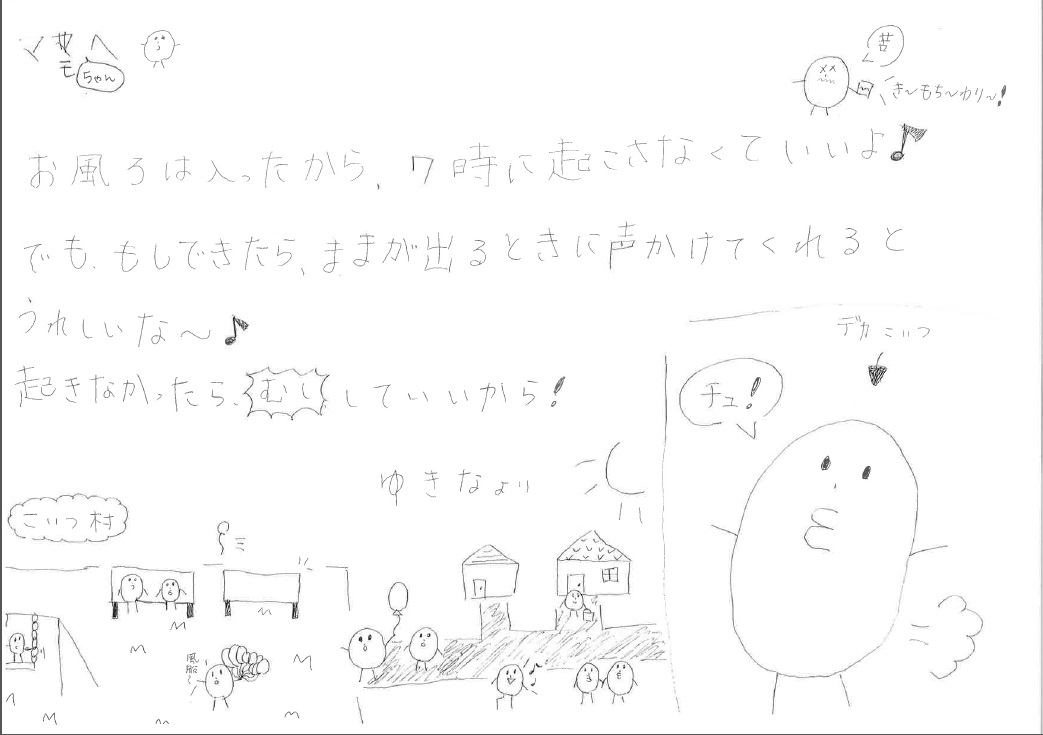 ママへ
ちゃん
苦
き～もち～わり～!
お風ろは入ったから、7時に起こさなくていいよ♪
でも、もしできたら、ままが出るときに声かけてくれると
うれしいな～♪
起きなかったら、むししていいから!
ゆきなより
デカこいつ
チュ!
こいつ村
風船～